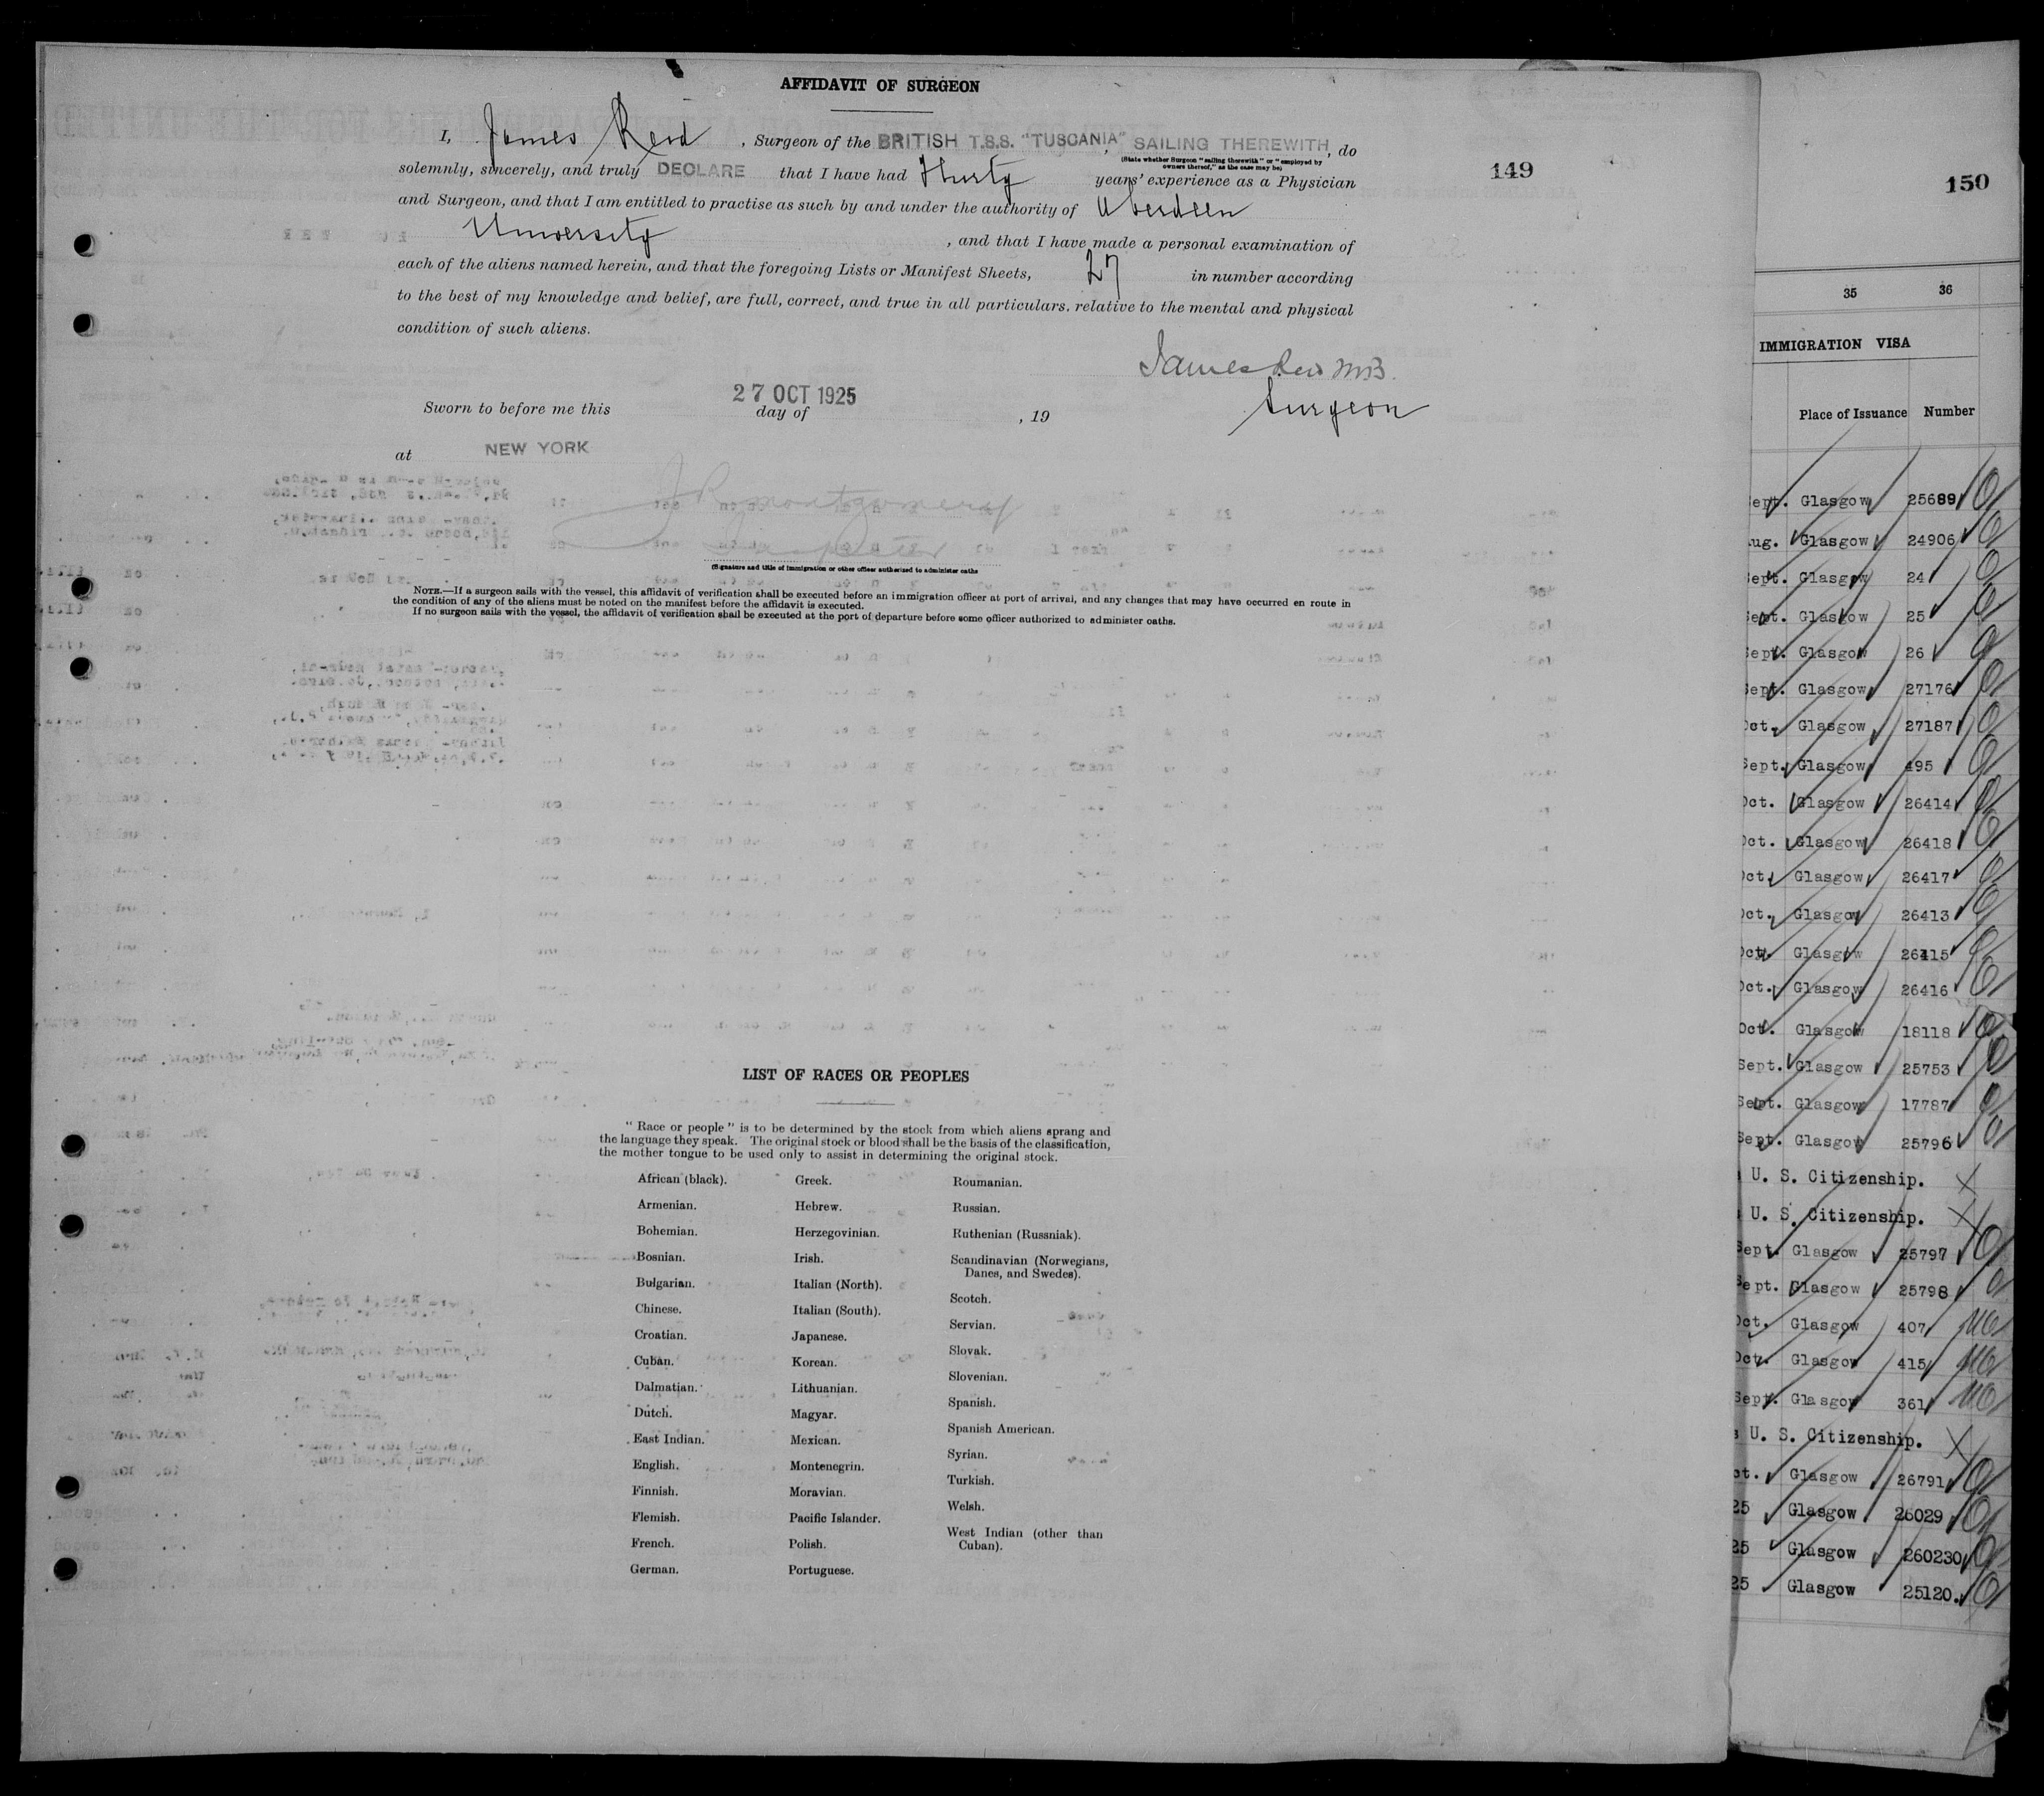 AFFIDAVIT OF SURGEON
I, James Reid, Surgeon of the BRITISH T.S.S. "TUSCANIA", SAILING THEREWITH, do
(State whether Surgeon "sailing therewith" or "employed by
owners thereof," as the case may be)
solemnly, sincerely, and truly DECLARE that I have had Thirty years' experience as a Physician
and Surgeon, and that I am entitled to practise as such by and under the authority of Aberdeen
University, and that I have made a personal examination of
each of the aliens named herein, and that the foregoing Lists or Manifest Sheets, 27 in number according
to the best of my knowledge and belief, are full, correct, and true in all particulars, relative to the mental and physical
condition of such aliens.
James Reid M.B.
Surgeon
27 OCT 1925
Sworn to before me this day of , 19
at NEW YORK
J R Montgomery
Inspector
(Signature and title of immigration or other officer authorized to administer oaths
NOTE.—If a surgeon sails with the vessel, this affidavit of verification shall be executed before an immigration officer at port of arrival, and any changes that may have occurred en route in
the condition of any of the aliens must be noted on the manifest before the affidavit is executed.
If no surgeon sails with the vessel, the affidavit of verification shall be executed at the port of departure before some officer authorized to administer oaths.
LIST OF RACES OR PEOPLES
"Race or people" is to be determined by the stock from which aliens sprang and
the language they speak. The original stock or blood shall be the basis of the classification,
the mother tongue to be used only to assist in determining the original stock.
African (black).
Armenian.
Bohemian.
Bosnian.
Bulgarian.
Chinese.
Croatian.
Cuban.
Dalmatian.
Dutch.
East Indian.
English.
Finnish.
Flemish.
French.
German.
Greek.
Hebrew.
Herzegovinian.
Irish.
Italian (North).
Italian (South).
Japanese.
Korean.
Lithuanian.
Magyar.
Mexican.
Montenegrin.
Moravian.
Pacific Islander.
Polish.
Portuguese.
Roumanian.
Russian.
Ruthenian (Russniak).
Scandinavian (Norwegians,
Danes, and Swedes).
Scotch.
Servian.
Slovak.
Slovenian.
Spanish.
Spanish American.
Syrian.
Turkish.
Welsh.
West Indian (other than
Cuban).
149
150
35 36
IMMIGRATION VISA
Place of Issuance Number
Sept. Glasgow 25689
Aug. Glasgow 24906
Sept. Glasgow 24
Sept. Glasgow 25
Sept. Glasgow 26
Sept. Glasgow 27176
Oct. Glasgow 27187
Sept. Glasgow 495
Oct. Glasgow 26414
Oct. Glasgow 26418
Oct. Glasgow 26417
Oct. Glasgow 26413
Oct. Glasgow 26415
Oct. Glasgow 26416
Oct. Glasgow 18118
Sept. Glasgow 25753
Sept. Glasgow 17787
Sept. Glasgow 25796
U. S. Citizenship.
U. S. Citizenship.
Sept. Glasgow 25797
Sept. Glasgow 25798
Oct. Glasgow 407
Oct. Glasgow 415
Sept. Glasgow 361
U. S. Citizenship.
ct. Glasgow 26791
25 Glasgow 26029
25 Glasgow 260230
25 Glasgow 25120.